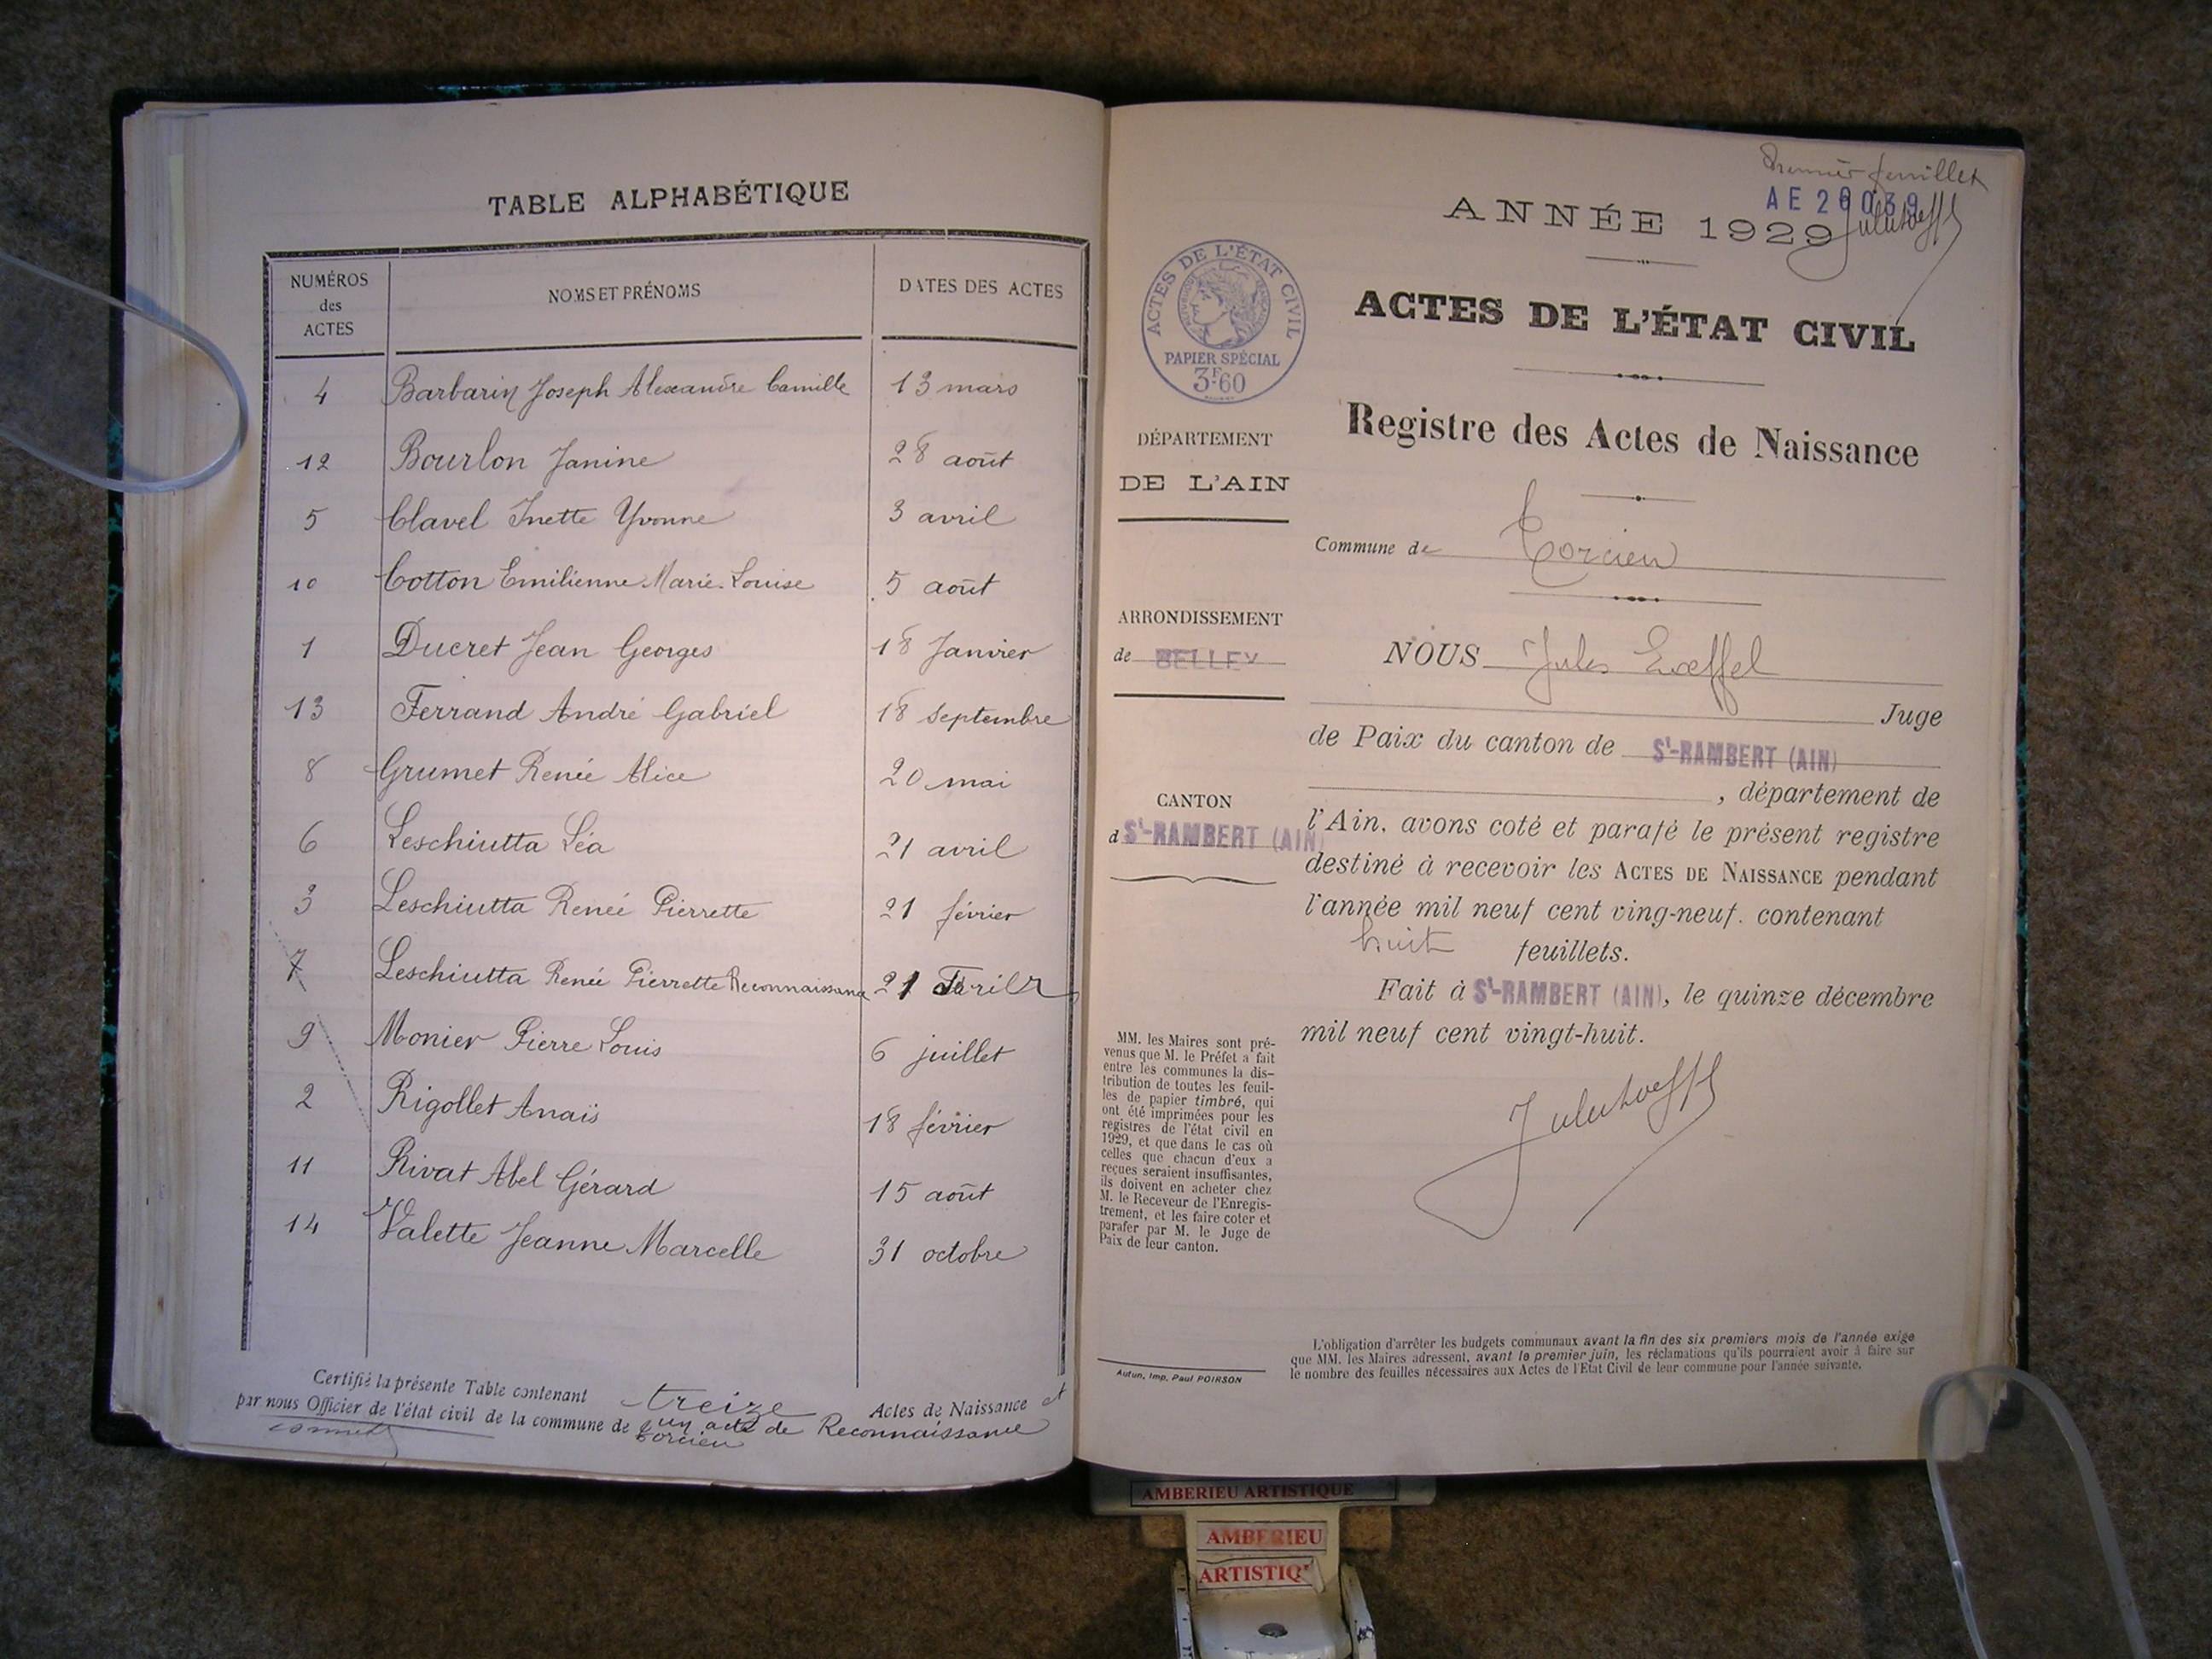 TABLE ALPHABÉTIQUE
NUMÉROS des ACTES NOMS ET PRÉNOMS DATES DES ACTES
4 Barbarin Joseph Alexandre Camille 13 mars
12 Bourlon Janine 28 août
5 Clavel Inette Yvonne 3 avril
10 Cotton Emilienne Marie-Louise 5 août
1 Ducret Jean Georges 18 Janvier
13 Ferrand André Gabriel 18 septembre
8 Grumet Renée Alice 20 mai
6 Leschiutta Léa 21 avril
3 Leschiutta Renée Pierrette 21 février
7 Leschiutta Renée Pierrette Reconnaissance 21
9 Monier Pierre Louis 6 juillet
2 Rigollet Anaïs 18 février
11 Rivat Abel Gérard 15 août
14 Valette Jeanne Marcelle 31 octobre
Certifié la présente Table contenant treize Actes de Naissance et
par nous Officier de l'état civil de la commune de un acte de Reconnaissance
Torcieu
Premier feuillet
AE 20039
ANNÉE 1929
ACTES DE L'ÉTAT CIVIL
RÉPUBLIQUE FRANÇAISE
PAPIER SPÉCIAL
3F.60
ACTES DE L'ÉTAT CIVIL
Registre des Actes de Naissance
DÉPARTEMENT
DE L'AIN
Commune de Torcieu
ARRONDISSEMENT
de BELLEY
CANTON
d St-RAMBERT (AIN)
NOUS Jules
Juge
de Paix du canton de St-RAMBERT (AIN)
, département de
l'Ain, avons coté et parafé le présent registre
destiné à recevoir les ACTES DE NAISSANCE pendant
l'année mil neuf cent ving-neuf. contenant
huit feuillets.
Fait à St-RAMBERT (AIN), le quinze décembre
mil neuf cent vingt-huit.
MM. les Maires sont pré-
venus que M. le Préfet a fait
entre les communes la dis-
tribution de toutes les feuil-
les de papier timbré, qui
ont été imprimées pour les
registres de l'état civil en
1929, et que dans le cas où
celles que chacun d'eux a
reçues seraient insuffisantes,
ils doivent en acheter chez
M. le Receveur de l'Enregis-
trement, et les faire coter et
parafer par M. le Juge de
Paix de leur canton.
Autun, Imp. Paul POIRSON
L'obligation d'arrêter les budgets communaux avant la fin des six premiers mois de l'année exige
que MM. les Maires adressent, avant le premier juin, les réclamations qu'ils pourraient avoir à faire sur
le nombre des feuilles nécessaires aux Actes de l'Etat Civil de leur commune pour l'année suivante.
AMBERIEU ARTISTIQUE
AMBERIEU
ARTISTIQ